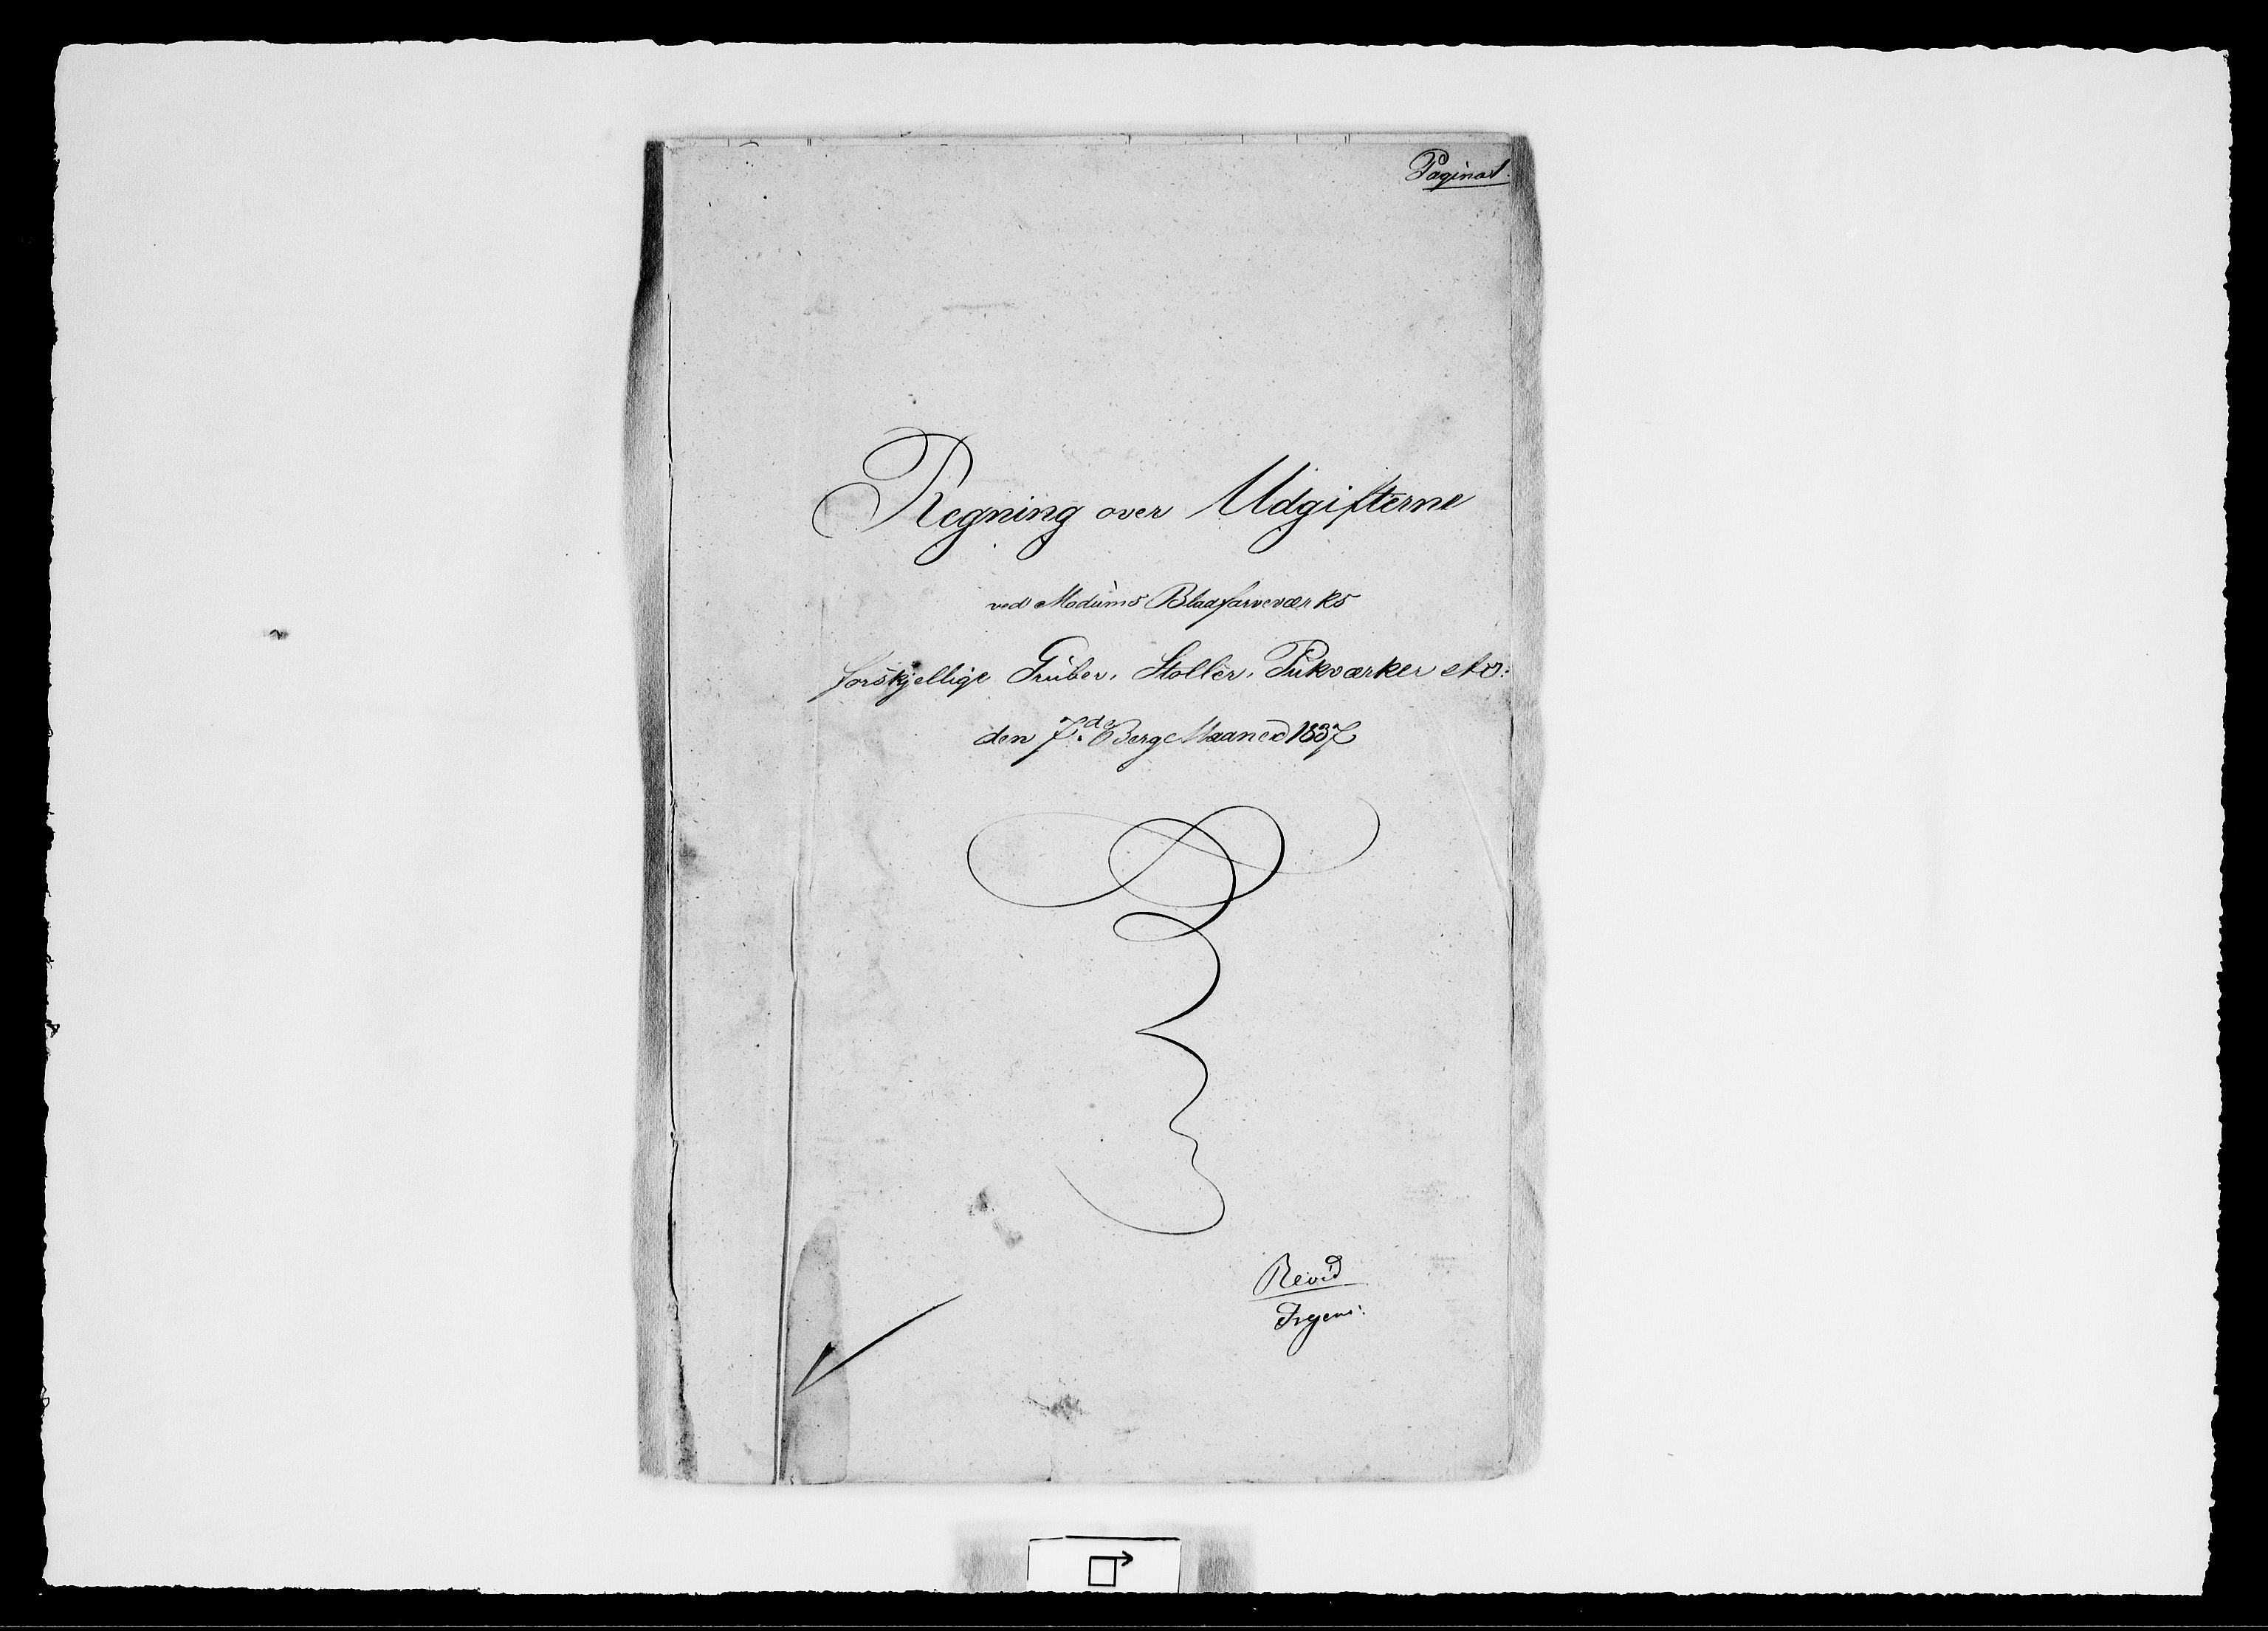 Pagina 1.
Regning over Udgifterne
ved Modums Blaafarveværks
forskjellige Gruber, Stoller, Pukværker etc:
den 7de Berg Maaned 1837
Revid
Irgens: